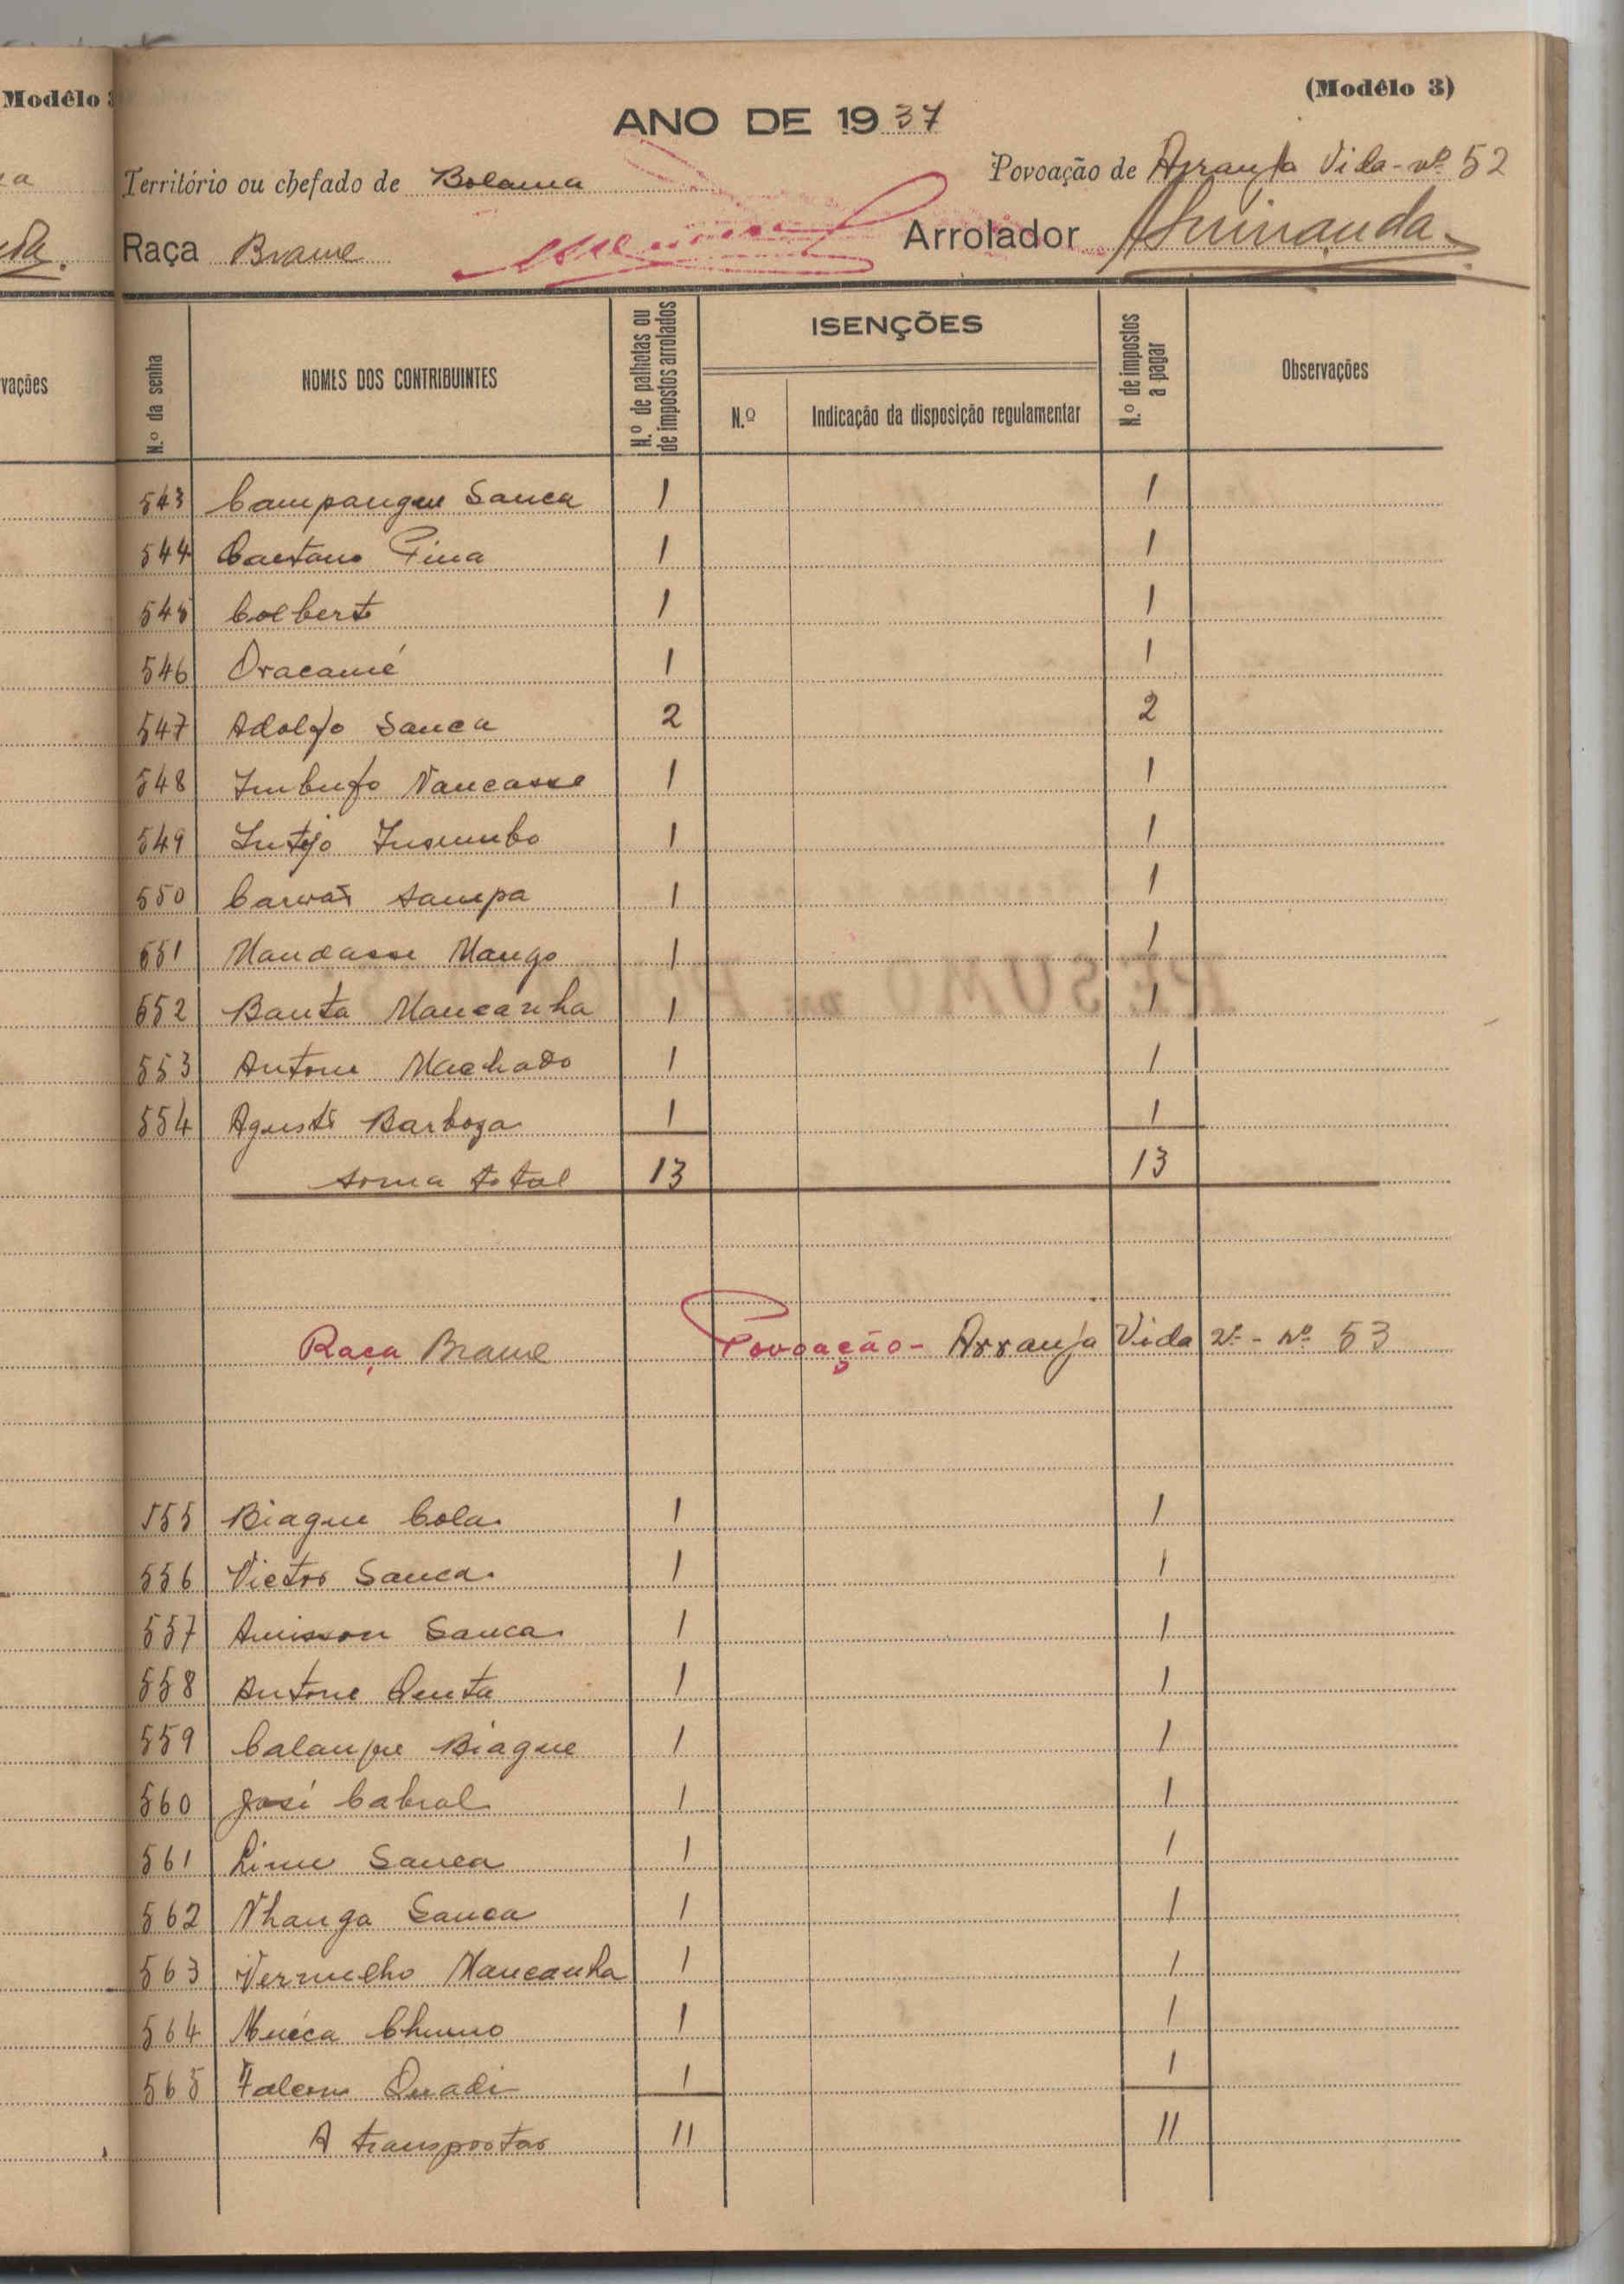 Modêlo 3
(Modêlo 3)
ANO DE 1937
Território ou chefado de Bolama
Povoação de Arranja Vida - nº 52
Raça Brame
Arrolador
vações
N.º da senha
NOMES DOS CONTRIBUINTES
N.º de palhotas ou de impostos arrolados
ISENÇÕES
N.º
Indicação da disposição regulamentar
N.º de impostos a pagar
Observações
543 Campangue Sanca 1 1
544 Caetano Pina 1 1
545 Colberto 1 1
546 Oracamé 1 1
547 Adolfo Sanca 2 2
548 Imbufo Vancasse 1 1
549 1 1
550 Sampa 1 1
551 Mandasse Mango 1 1
552 Banta Mancanha 1 1
553 Antone Machado 1 1
554 Agusto Barboza 1 1
soma total 13 13
Raça Brame Povoação - Arranja Vida 2º - nº 53
555 Biague Cola 1 1
556 Victor Sanca 1 1
557 Amisson Sanca 1 1
558 Antone Quuta 1 1
559 Biague 1 1
560 José Cabral 1 1
561 Sanca 1 1
562 Nhanga Sanca 1 1
563 Vermelho Mancanha 1 1
564 1 1
565 1 1
A transportar 11 11